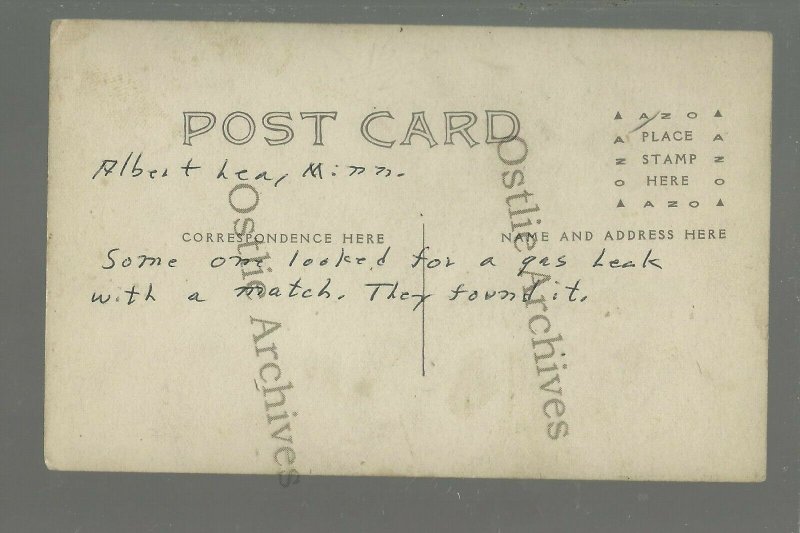 POST CARD
▲ A Z O ▲
A PLACE A
Z STAMP Z
O HERE O
▲ A Z O ▲
Albert Lea, Minn.
CORRESPONDENCE HERE
NAME AND ADDRESS HERE
Some one looked for a gas leak
with a match. They found it.
Ostlie Archives
Ostlie Archives